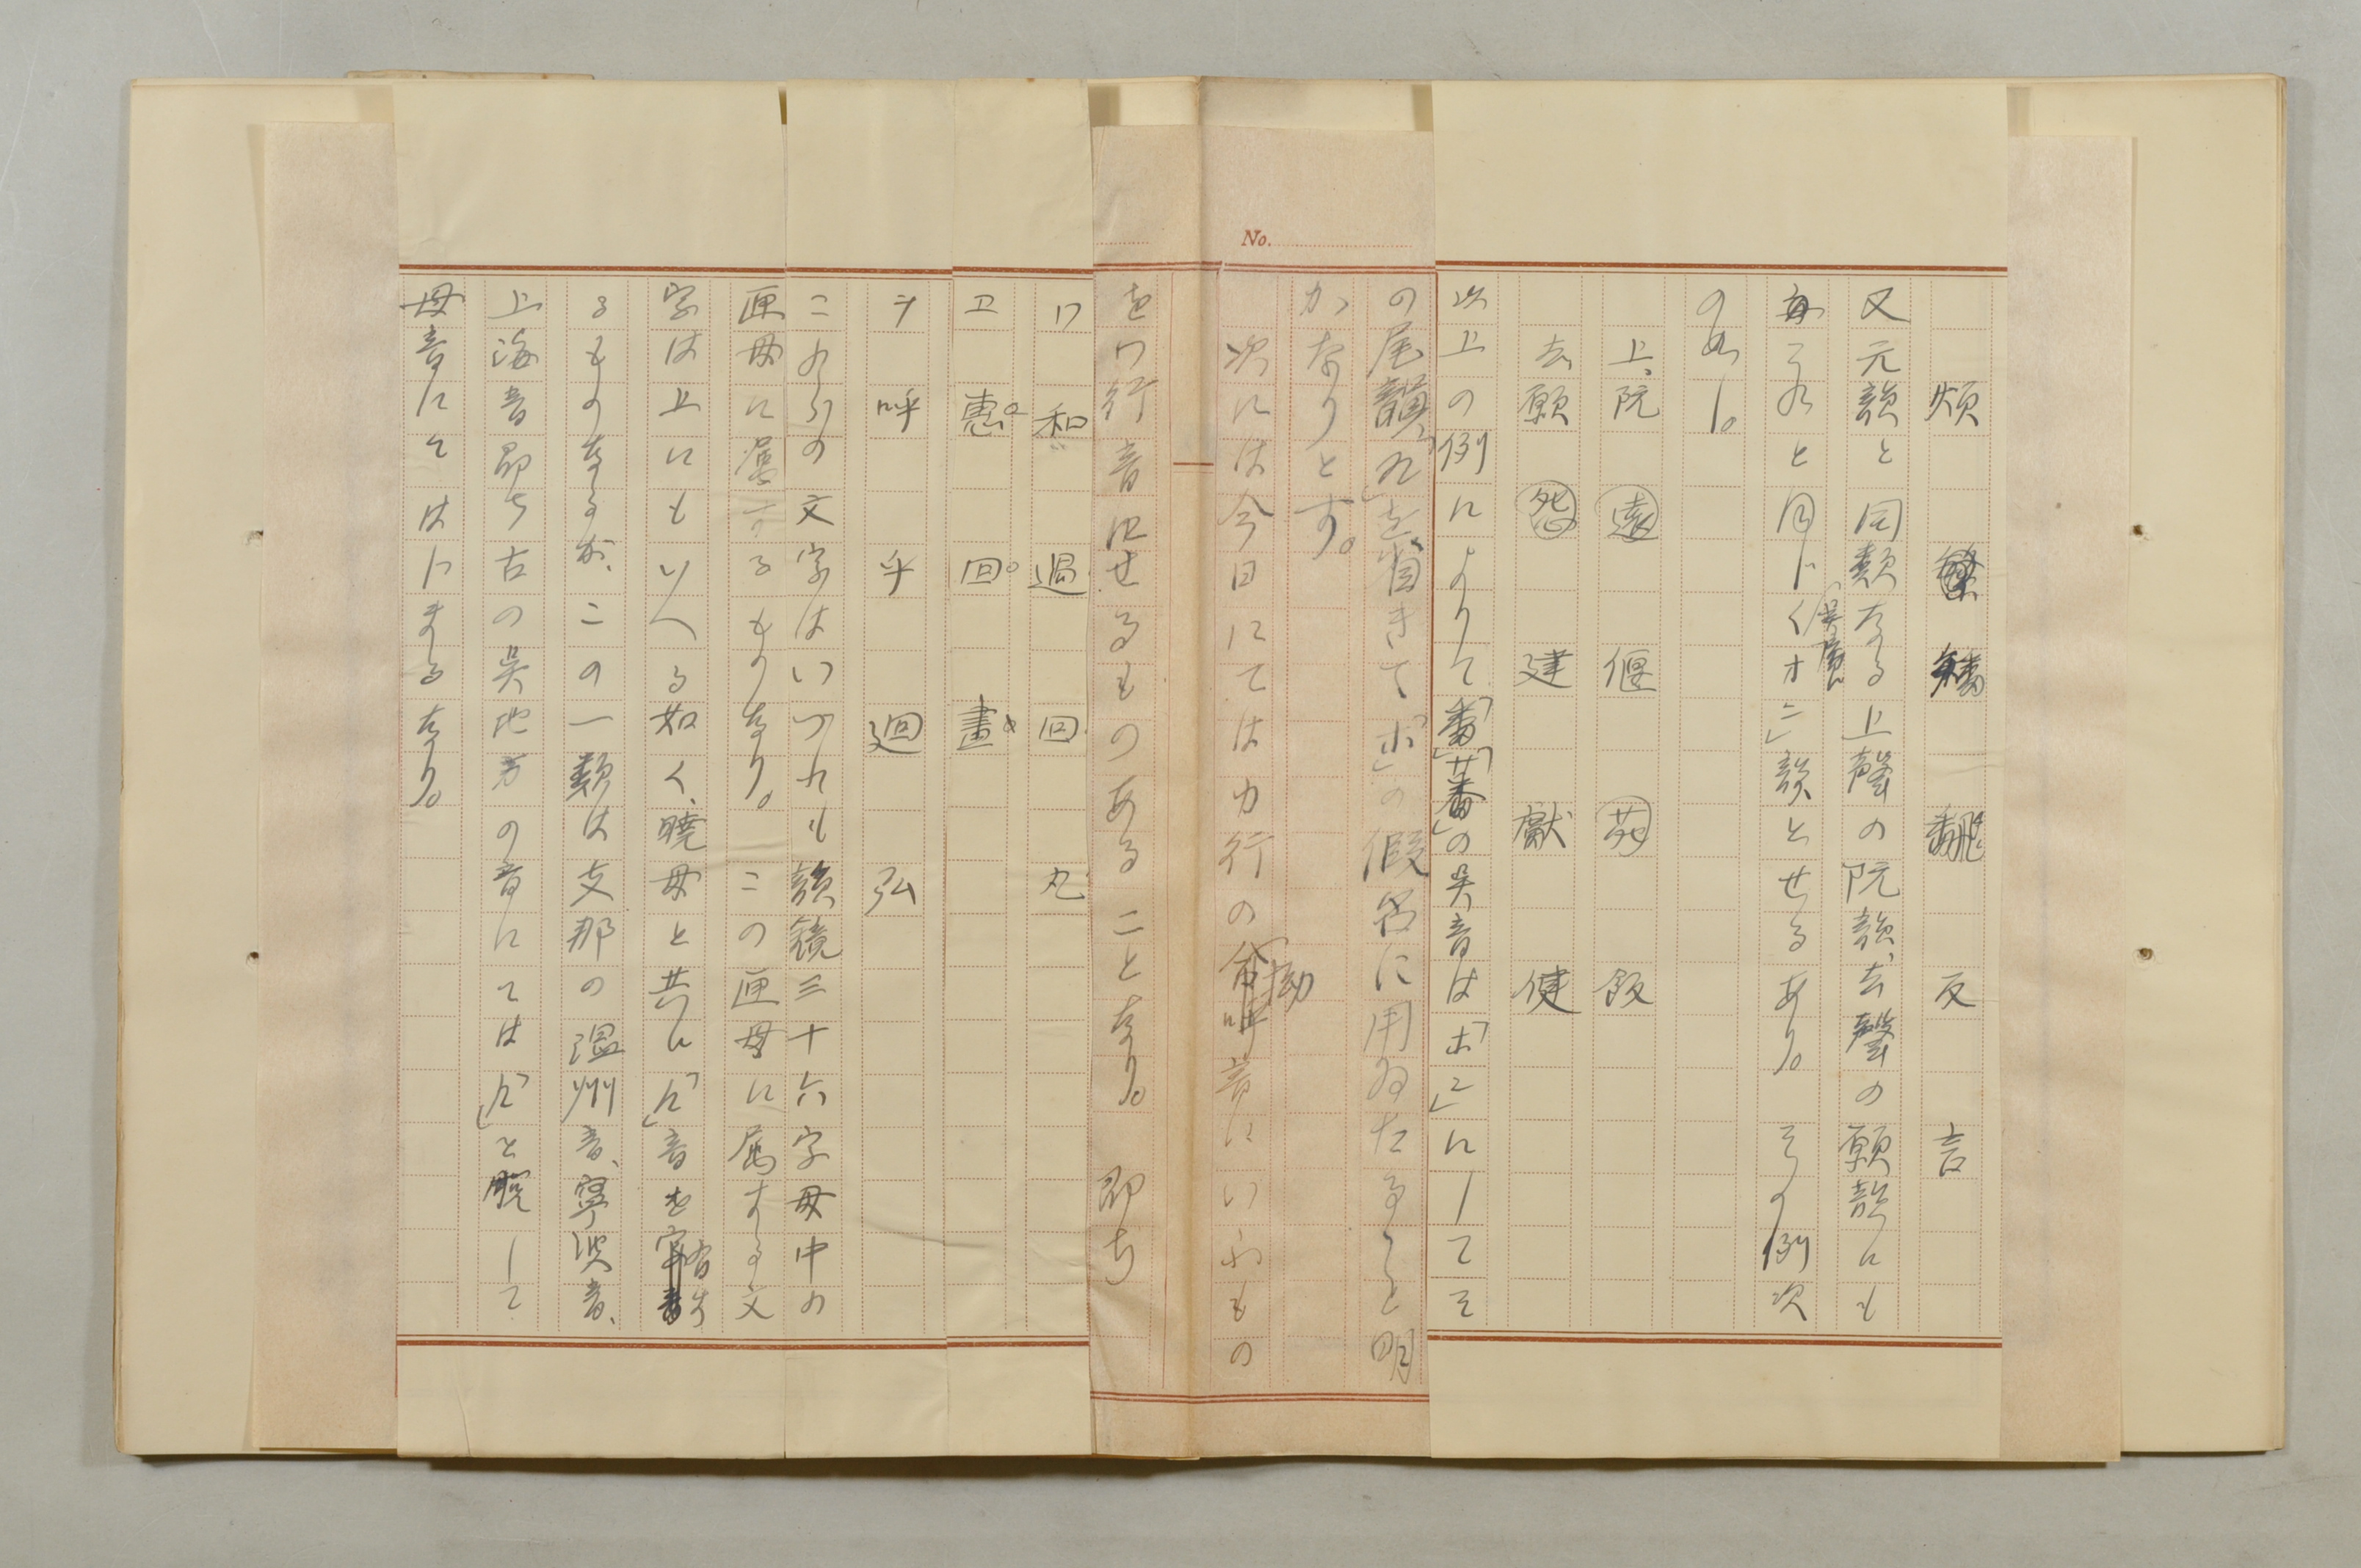 煩 繁 飜 翻 反 言
又元韻と同類なる上聲の阮韻、去聲の願韻にも
亦これと同じく(呉音)「オン」韻とせるあり。その例次
の如し。
上、阮 遠 偃 苑 飯
去 願 怨 建 獻 健
以上の例によりて「番」「蕃」の呉音は「ホン」にしてそ
の尾韻「ン」を省きて「ホ」の假名に用ゐたること明
かなりとす。
No.
次には今日にてはカ行の拗音にいふもの
をワ行音に せるものあること なり。 即ち
ワ 和 過 回 丸
ヱ 惠 回 畫
ヲ 呼 乎 迴 弘
これらの文字はいづれも韻鏡三十六字母中の
匣母に屬するものなり。この匣母に屬する文
字は上にもいへる如く、曉母と共に「h」音を
るものなるが、この一類は支那の溫州音、寧波音、
上海音即ち古の吳地方の音にては「h」を脱して
母音にてはじまるなり。